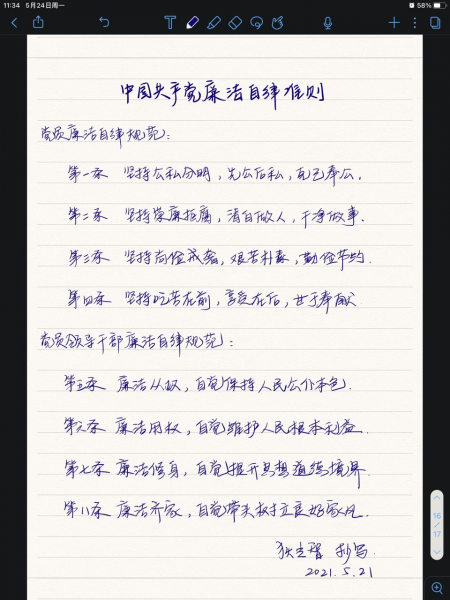 11:34 5月24日周一
58%
中国共产党廉洁自律准则
党员廉洁自律规范:
第一条 坚持公私分明,先公后私,克己奉公.
第二条 坚持崇廉拒腐,清白做人,干净做事.
第三条 坚持尚俭戒奢,艰苦朴素,勤俭节约.
第四条 坚持吃苦在前,享受在后,甘于奉献
党员领导干部廉洁自律规范:
第五条 廉洁从政,自觉保持人民公仆本色.
第六条 廉洁用权,自觉维护人民根本利益.
第七条 廉洁修身,自觉提升思想道德境界.
第八条 廉洁齐家,自觉带头树立良好家风.
抄写
2021.5.21
16/17